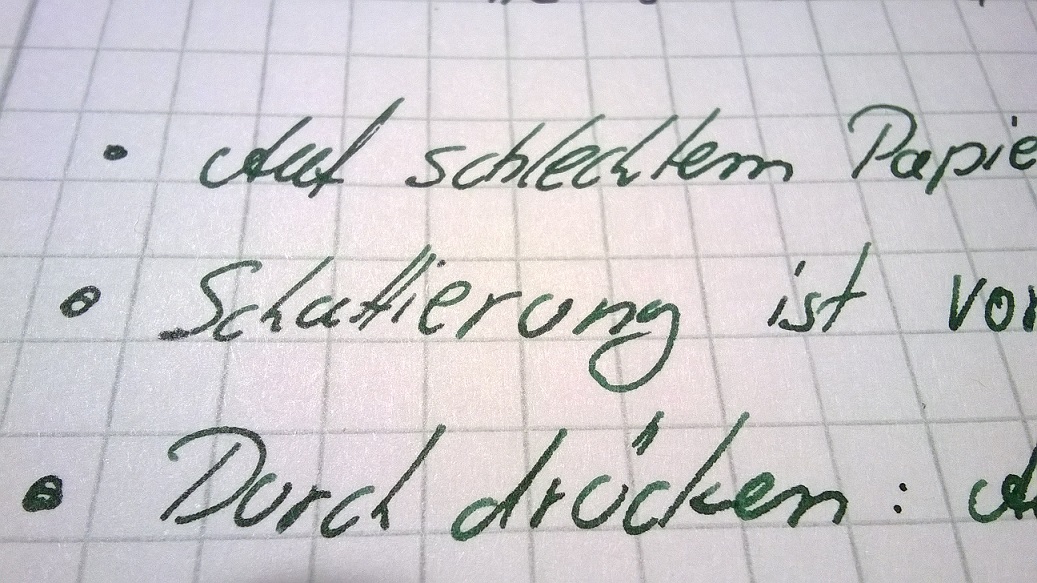 • Auf schlechtem Papie
• Schattierung ist vor
• Durchdrücken: A